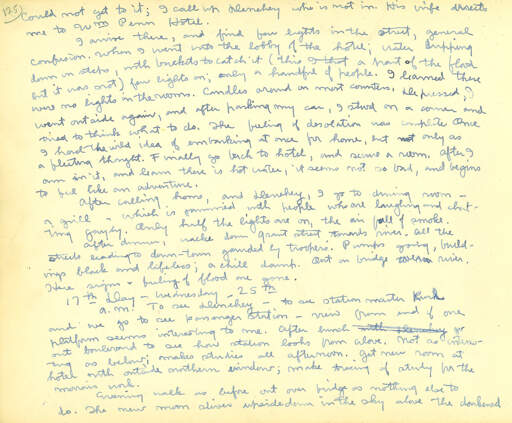 125)
Could not get to it; I call up Denehey who is not in. His wife directs
me to Wm Penn Hotel.
I arrive there, and find few lights in the street, general
confusion. When I went into the lobby of the hotel; water dripping
down in steps, with buckets to catch it (this I that a part of the flood
but it was not) few lights on; only a handful of people. I learned there
were no lights in the rooms. Candles around on most counters. Depressed, I
went outside again, and after parking my car, I stood on a corner and
tried to think what to do. The feeling of desolation was complete. Once
I had the wild idea of embarking at once for home, but not only as
a fleeting thought. Finally go back to hotel, and secure a room. After I
am in it, and learn there is hot water, it seems not so bad, and begins
to feel like an adventure.
After calling home, and Denehey, I go to dining room –
a grill – which is jammed with people who are laughing and chat-
ting gayly. Only half the lights are on, the air full of smoke.
After dinner, walk down Grant street towards river. All the
streets leading to down-town guarded by troopers. Pumps going, build-
ings black and lifeless; a chill damp. Out on bridge over river.
Here signs & feeling of flood are gone.
17th Day – Wednesday – 25th
a.m. To see Denehey – to see station master Kirk
and we go to see passenger station – view from end of one
platform seems interesting to me. After lunch with Denehey go
out boulevard to see how station looks from above. Not as interes-
ting as below; makes studies all afternoon. Get new room at
hotel with outside northern windows; make tracing of study for the
morrow's work.
Evening walk as before out over bridge as nothing else to
do. The new moon slivers upside down in the sky above the darkened